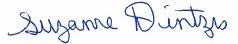 Suzanne Dintzis